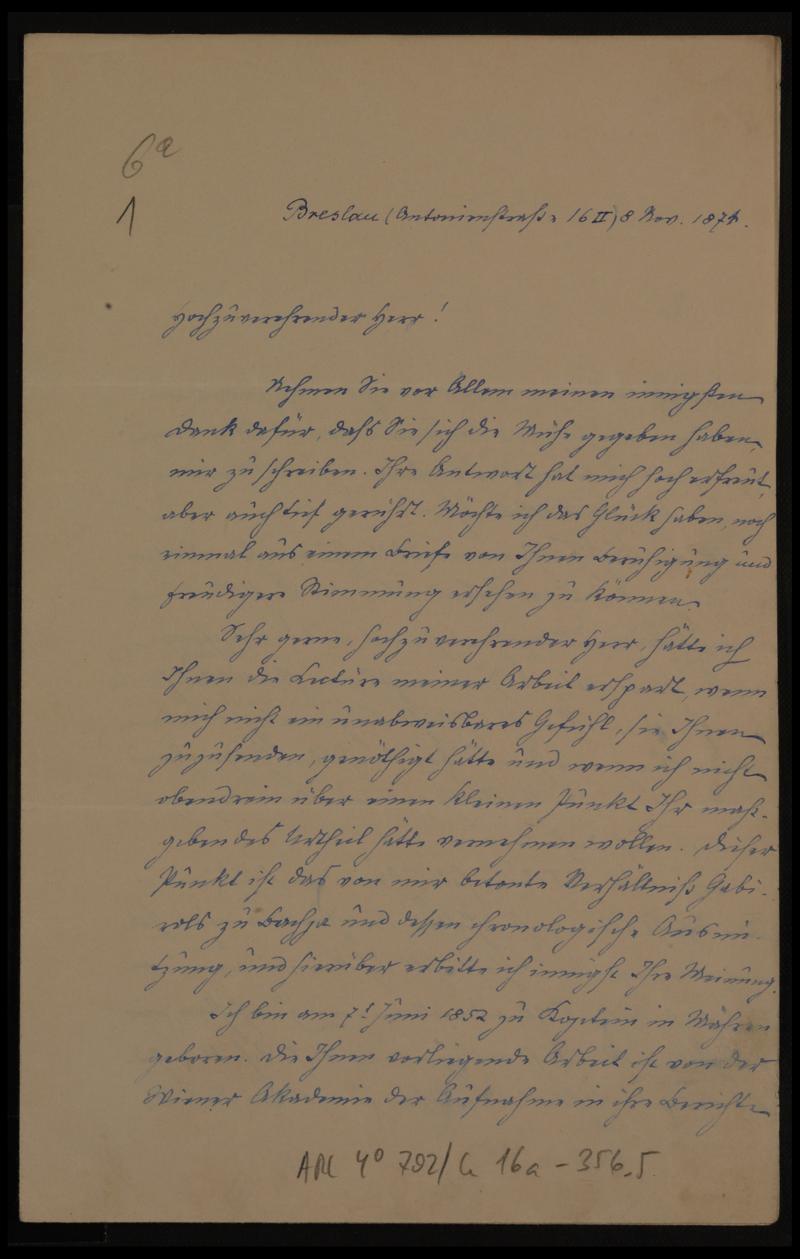 6a
1
Breslau (Antonienstraße 16 II) 8 Nov. 1874.
Hochzuverehrender Herr!
Nehmen Sie vor Allem meinen innigsten
Dank dafür, daß Sie sich die Mühe gegeben haben,
mir zu schreiben. Ihre Antwort hat mich hoch erfreut,
aber auch tief gerührt. Möchte ich das Glück haben, noch
einmal aus einem Briefe von Ihnen Beruhigung und
freudigere Stimmung ersehen zu können.
Sehr gerne, hochzuverehrender Herr, hätte ich
Ihnen die Lectüre meiner Arbeit erspart, wenn
mich nicht ein unabweisbares Gefühl, sie Ihnen
zuzusenden, genöthigt hätte und wenn ich nicht
obendrein über einen kleinen Punkt Ihr maß-
gebendes Urtheil hätte vernehmen wollen. Dieser
Punkt ist das von mir betonte Verhältniß Gabi-
rols zu Bachja und dessen chronologische Ausnü-
tzung, und hierüber erbitte ich innigst Ihre Meinung.
Ich bin am 7t Juni 1852 zu Kojetein in Mähren
geboren. Die Ihnen vorliegende Arbeit ist von der
Wiener Akademie der Aufnahme in ihre Berichte
ARC 4° 792/ 16a - 356.5